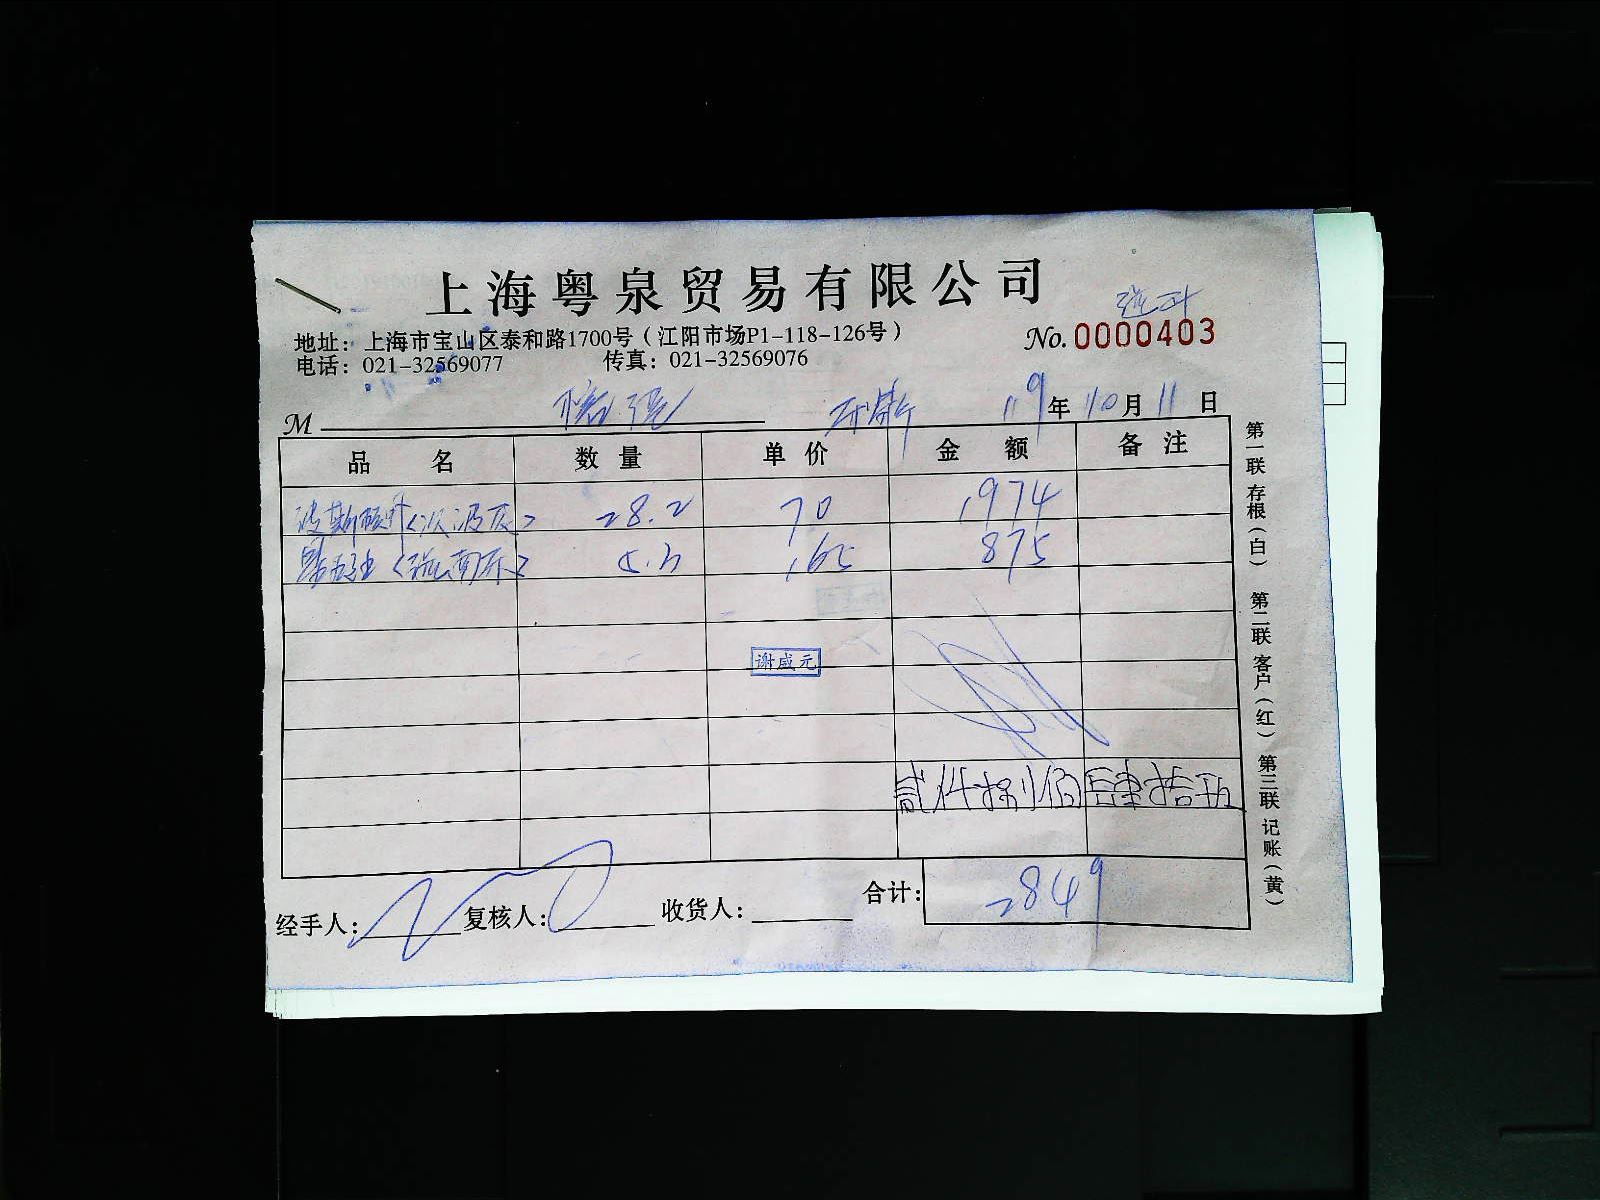 上海粤泉贸易有限公司
地址：上海市宝山区泰和路1700号（江阳市场P1-118-126号）
No.0000403
电话：021-32569077 传真：021-32569076
M 19年10月11日
品名 数量 单价 金额 备注
28.2 70 1974
165 875
谢咸元
贰仟捌佰肆拾玖
合计：2849
经手人： 复核人： 收货人：
第一联 存根（白） 第二联 客户（红） 第三联 记账（黄）